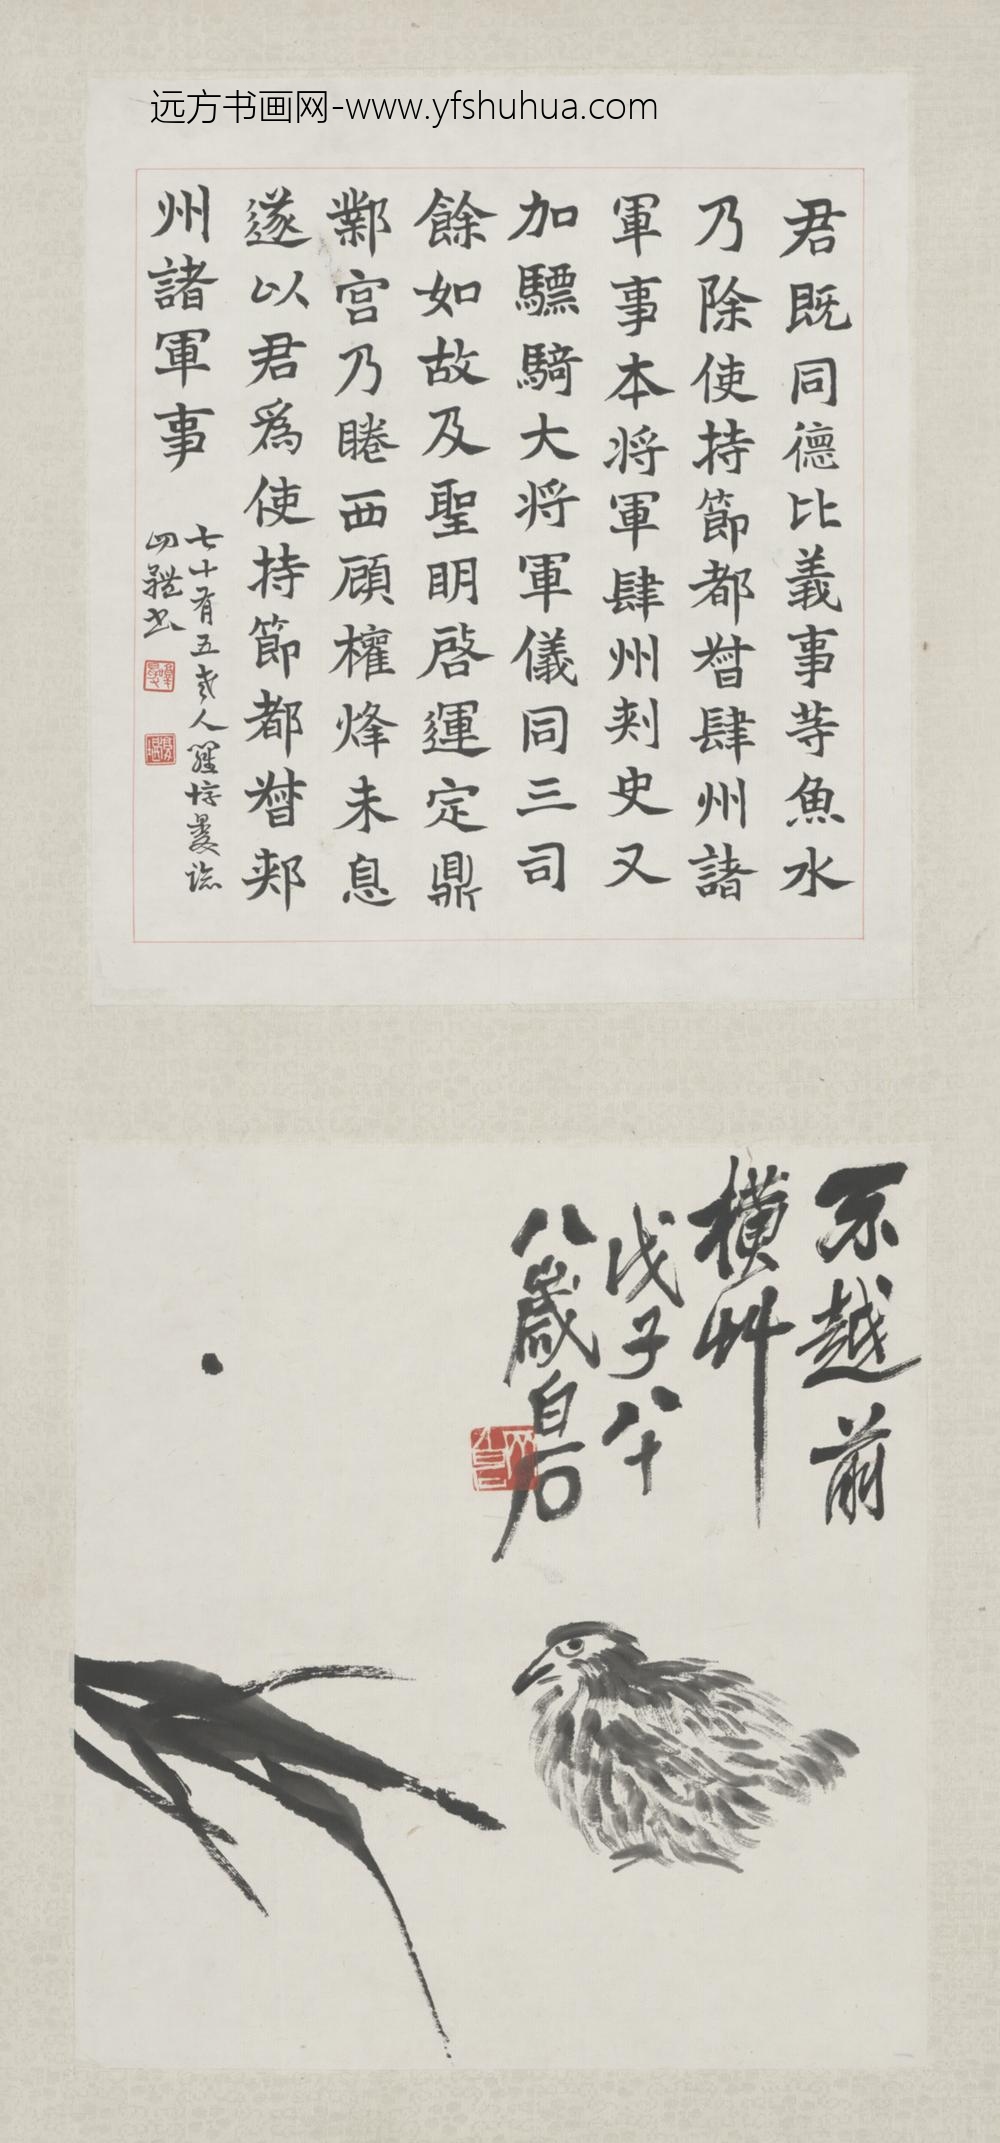 远方书画网-www.yfshuhua.com
君既同德比義事等魚水
乃除使持節都督肆州諸
軍事本将軍肆州刾史又
加驃騎大将軍儀同三司
餘如故及聖明啓運定鼎
鄴宫乃睠西顧權烽未息
遂以君爲使持節都督郟
州諸軍事
七十有五叟人羅惇㬊臨
四體書
不越前
橫艸
戊子八十
八歲白石